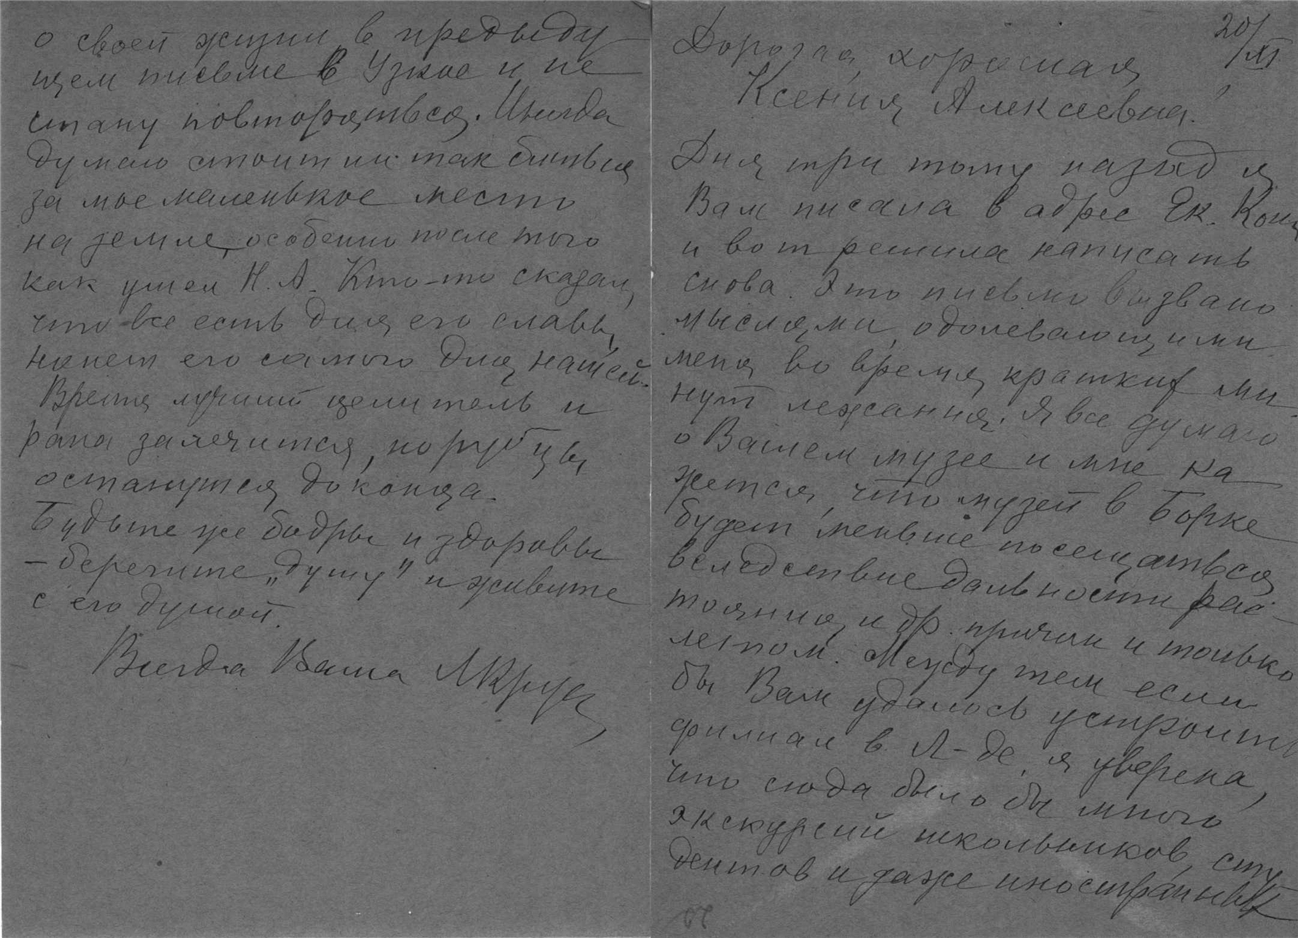 20/XI
Дорогая, хорошая
Ксения Алексеевна!
Дня три тому назад я
Вам писала в адрес Ек. Кон
и вот решила написать
снова. Это письмо вызвано
мыслями, одолевающими
меня во время кратких ми-
нут лежания. Я все думаю
о Вашем музее и мне ка
жется, что музей в Борке
будет меньше посещаться
вследствие дальности рас-
тояния и др. причин и только
летом. Между тем если
бы Вам удалось устроить
филиал в Л-де, я уверена,
что сюда было бы много
экскурсий школьников, сту
дентов и даже иностранных
о своей жизни в предыду
щем письме в Узкое и не
стану повторяться. Иногда
думаю стоит ли так биться
за мое маленькое место
на земле, особенно после того
как ушел Н. А. Кто-то сказал,
что все есть для его славы,
но нет его самого для нашей.
Время лучший целитель и
рана залечится, но рубцы
останутся до конца.
Будьте же бодры и здоровы
– берегите „душу" и живите
с его думой.
Всегда Ваша